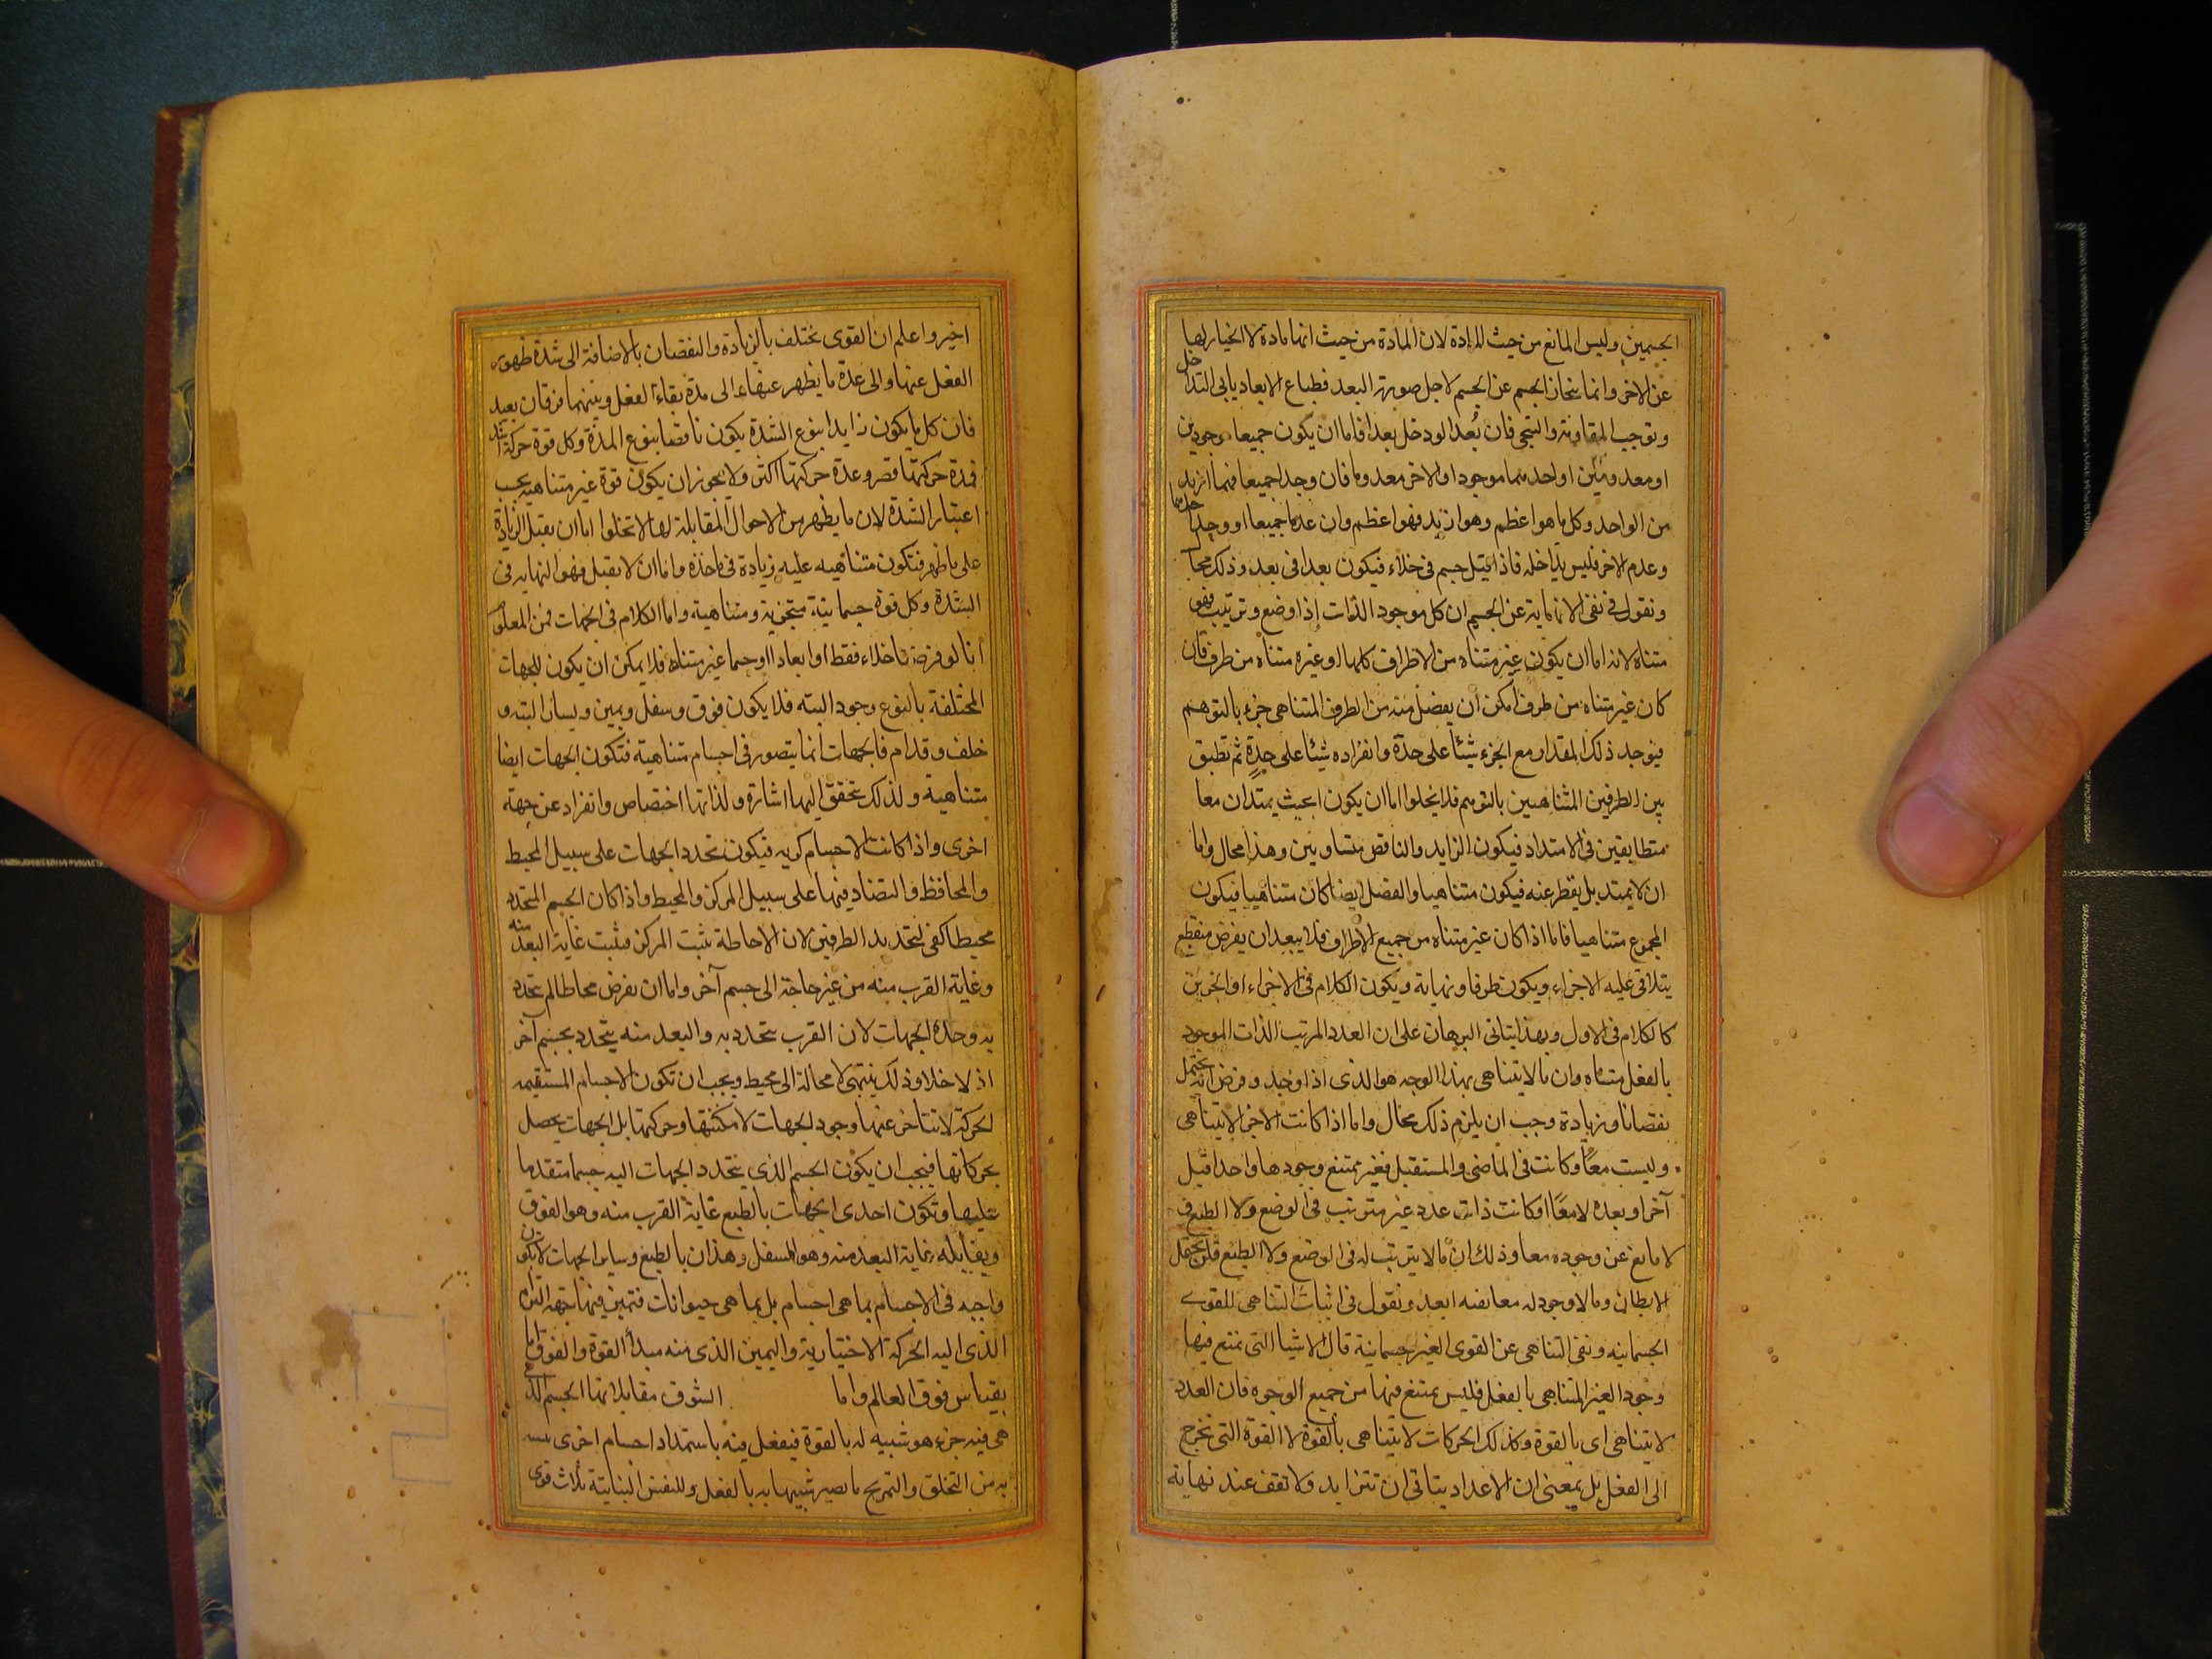 الجسمين وليس المانع من حيث المادة لان المادة من حيث انها مادة لا انحياز لها
عن الاخر وانما ينحاز الجسم عن الجسم لاجل صورة البعد فطباع الابعاد يابى التداخل
وتوجب المقاومة والتنحى فان بُعدا لو دخل بعدا فاما ان يكون جميعا موجودين
او معدومين او احدهما موجودا والاخر معدوما فان وجدا جميعا فهما ازيد
من الواحد وكل ما هو اعظم وهو ازيد فهو اعظم وان عدما جميعا او وجد احدهما
وعدم الاخر فليس يداخله فاذا قيل جسم فى خلاء فيكون بعدا فى بعد وذلك محال
ونقول فى نفى الانهاية عن الجسم ان كل موجود الذات اذا وضع وترتيب فهو
متناه لانه اما ان يكون غير متناه من الاطراف كلها او غيره متناه من طرف فان
كان غير متناه من طرف امكن ان يفصل منه من الطرف المتناهى جزء بالتوهم
فيوجد ذلك المقدار مع الجزء شيئا على حدة وانفراده شيئا على حدةٍ ثم نطبق
بين الطرفين المتناهيين بالتوهم فلا يخلوا اما ان يكون ابحيث يمتدان معا
متطابقين فى الامتداد فيكون الزايد والناقص متساويين وهذا محال واما
ان لا يمتد بل يقطر عنه فيكون متناهيا والفضل ايضا كان متناهيا فيكون
المجموع متناهيا فاما اذا كان غير متناه من جميع الاطراف فلا يبعد ان يفرض منقطع
يتلاقى عليه الاجزاء ويكون طرفا ونهاية ويكون الكلام فى الاجزاء او الجزئين
كالكلام فى الاول وبهذا يتاتى البرهان على ان العدد المرتب الذات الموجود
بالفعل متناه وان مالا يتناهى بهذا الوجه هو الذى اذا وجد وفرض انه يحتمل
نقصانا وزيادة وجب ان يلزم ذلك محال واما اذا كانت الاجزا لا يتناهى
وليست معًا وكانت فى الماضى والمستقبل فغير ممتنع وجودها واحدا قبل
آخر او بعده لا معًا او كانت ذات عدد غير مترتب فى الوضع ولا الطبع ف
لا مانع عن وجوده معا وذلك ان مالا يترتب له فى الوضع ولا الطبع فلن يحتمل
الانطباق ومالا وجود له معا نفيه ابعد ونقول فى اثبات التناهى للقوى
الجسمانيه ونفى التناهى عن القوى الغير جسمانية قال الاشيا التى يمتنع فيها
وجود الغير المتناهى بالفعل فليس يمتنع فيها من جميع الوجوه فان العدد
لا يتناهى اى بالقوة وكذلك الحركات لا يتناهى بالقوة لا القوة التى تخرج
الى الفعل بل بمعنى ان الاعداد يتاتى ان تتزايد ولا تقف عند نهاية
اخير واعلم ان القوى يختلف بالزيادة والنقصان بالاضافة الى شدة ظهور
الفعل عنها والى عدة ما يظهر عنها الى مدة بقاء الفعل وبينهما فرقان بعيد
فان كل ما يكون زايدا بنوع الشدة يكون ناقصا بنوع المدة وكل قوة حركة اشد
فمدة حركتها اقصر وعدة حركتها اكثر ولا يجوز ان يكون قوة غير متناهيه بحسب
اعتبار الشدة لان ما يظهر من الاحوال المقابلة لها لا تخلوا اما ان يقبل الزيادة
على ما ظهر فتكون متناهيه عليه زيادة فى واما ان لا يقبل فهو النهايه فى
الشدة وكل قوة جسمانية متجزية ومتناهية واما الكلام فى الجهات فمن المعلوم
انا لو فرضنا خلاء فقط او ابعادا او جسما غير متناه فلا يمكن ان يكون للجهات
المختلفة بالنوع وجود البته فلا يكون فوق وسفل ويمين ويسار البته و
خلف وقدام فالجهات انما يتصور فى اجسام متناهية فتكون الجهات ايضا
متناهية ولذلك تحقق اليها اشارة ولذاتها اختصاص وانفراد عن جهة
اخرى واذا كانت الاجسام كريه فيكون تحدد الجهات على سبيل المحيط
والمحافظ والتضاد فيها على سبيل المركز والمحيط واذا كان الجسم المتحدد
محيطا كفى لتحديد الطرفين لان الاحاطة تثبت المركز فثبت غاية البعد منه
وغاية القرب منه من غير حاجة الى جسم آخر واما ان يفرض محاطا لم تتحدد
به وحده الجهات لان القرب يتحدد به والبعد منه يتحدد بجسم آخر
اذ لا خلا وذلك ينتهى لا محالة الى محيط ويجب ان تكون الاجسام المستقيمه
الحركة لا تتاخر عنها وجود الجهات لامكنتها وحركتها بل الجهات يحصل
بحركاتها فيجب ان يكون الجسم الذى يتحدد الجهات اليه جسما متقدما
عليها وتكون احدى الجهات بالطبع غاية القرب منه وهو الفوق
ويقابله غاية البعد منه وهو السفل وهذان بالطبع وساير الجهات لا تكون
واجبه فى الاجسام بما هى اجسام بل بما هى حيوانات فتميز فيها جهة القدام
الذى اليه الحركة الاختيارية واليمين الذى منه مبدأ القوة والفوق اما
بقياس فوق العالم واما الشوق مقابلاتها الجسم الذى
هى فيه جزء هو شبيه له بالقوة فيفعل فيه باستمداد اجسام اخرى
به من التخلق والتمزيج ما تصير شبيها به بالفعل وللنفس النباتية ثلاث قوى